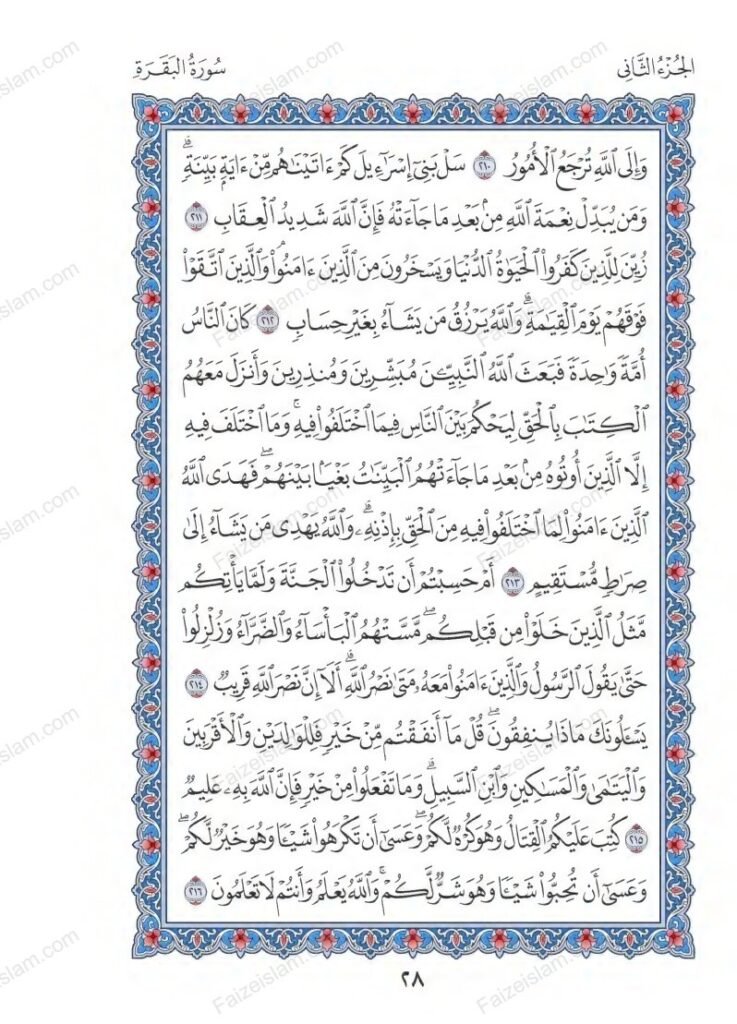 الجُزْءُ الثَّانِي
سُورَةُ البَقَرَةِ
وَإِلَى ٱللَّهِ تُرْجَعُ ٱلْأُمُورُ ٢١٠ سَلْ بَنِىٓ إِسْرَٰٓءِيلَ كَمْ ءَاتَيْنَٰهُم مِّنْ ءَايَةٍۭ بَيِّنَةٍۗ
وَمَن يُبَدِّلْ نِعْمَةَ ٱللَّهِ مِنۢ بَعْدِ مَا جَآءَتْهُ فَإِنَّ ٱللَّهَ شَدِيدُ ٱلْعِقَابِ ٢١١
زُيِّنَ لِلَّذِينَ كَفَرُوا۟ ٱلْحَيَوٰةُ ٱلدُّنْيَا وَيَسْخَرُونَ مِنَ ٱلَّذِينَ ءَامَنُوا۟ۘ وَٱلَّذِينَ ٱتَّقَوْا۟
فَوْقَهُمْ يَوْمَ ٱلْقِيَٰمَةِۗ وَٱللَّهُ يَرْزُقُ مَن يَشَآءُ بِغَيْرِ حِسَابٍ ٢١٢ كَانَ ٱلنَّاسُ
أُمَّةً وَٰحِدَةً فَبَعَثَ ٱللَّهُ ٱلنَّبِيِّـۧنَ مُبَشِّرِينَ وَمُنذِرِينَ وَأَنزَلَ مَعَهُمُ
ٱلْكِتَٰبَ بِٱلْحَقِّ لِيَحْكُمَ بَيْنَ ٱلنَّاسِ فِيمَا ٱخْتَلَفُوا۟ فِيهِۚ وَمَا ٱخْتَلَفَ فِيهِ
إِلَّا ٱلَّذِينَ أُوتُوهُ مِنۢ بَعْدِ مَا جَآءَتْهُمُ ٱلْبَيِّنَٰتُ بَغْيًۢا بَيْنَهُمْۖ فَهَدَى ٱللَّهُ
ٱلَّذِينَ ءَامَنُوا۟ لِمَا ٱخْتَلَفُوا۟ فِيهِ مِنَ ٱلْحَقِّ بِإِذْنِهِۦۗ وَٱللَّهُ يَهْدِى مَن يَشَآءُ إِلَىٰ
صِرَٰطٍ مُّسْتَقِيمٍ ٢١٣ أَمْ حَسِبْتُمْ أَن تَدْخُلُوا۟ ٱلْجَنَّةَ وَلَمَّا يَأْتِكُم
مَّثَلُ ٱلَّذِينَ خَلَوْا۟ مِن قَبْلِكُمۖ مَّسَّتْهُمُ ٱلْبَأْسَآءُ وَٱلضَّرَّآءُ وَزُلْزِلُوا۟
حَتَّىٰ يَقُولَ ٱلرَّسُولُ وَٱلَّذِينَ ءَامَنُوا۟ مَعَهُۥ مَتَىٰ نَصْرُ ٱللَّهِۗ أَلَآ إِنَّ نَصْرَ ٱللَّهِ قَرِيبٌ ٢١٤
يَسْـَٔلُونَكَ مَاذَا يُنفِقُونَۖ قُلْ مَآ أَنفَقْتُم مِّنْ خَيْرٍ فَلِلْوَٰلِدَيْنِ وَٱلْأَقْرَبِينَ
وَٱلْيَتَٰمَىٰ وَٱلْمَسَٰكِينِ وَٱبْنِ ٱلسَّبِيلِۗ وَمَا تَفْعَلُوا۟ مِنْ خَيْرٍ فَإِنَّ ٱللَّهَ بِهِۦ عَلِيمٌ
٢١٥ كُتِبَ عَلَيْكُمُ ٱلْقِتَالُ وَهُوَ كُرْهٌ لَّكُمْۖ وَعَسَىٰٓ أَن تَكْرَهُوا۟ شَيْـًٔا وَهُوَ خَيْرٌ لَّكُمْۖ
وَعَسَىٰٓ أَن تُحِبُّوا۟ شَيْـًٔا وَهُوَ شَرٌّ لَّكُمْۚ وَٱللَّهُ يَعْلَمُ وَأَنتُمْ لَا تَعْلَمُونَ ٢١٦
٢٨
Faizeislam.com